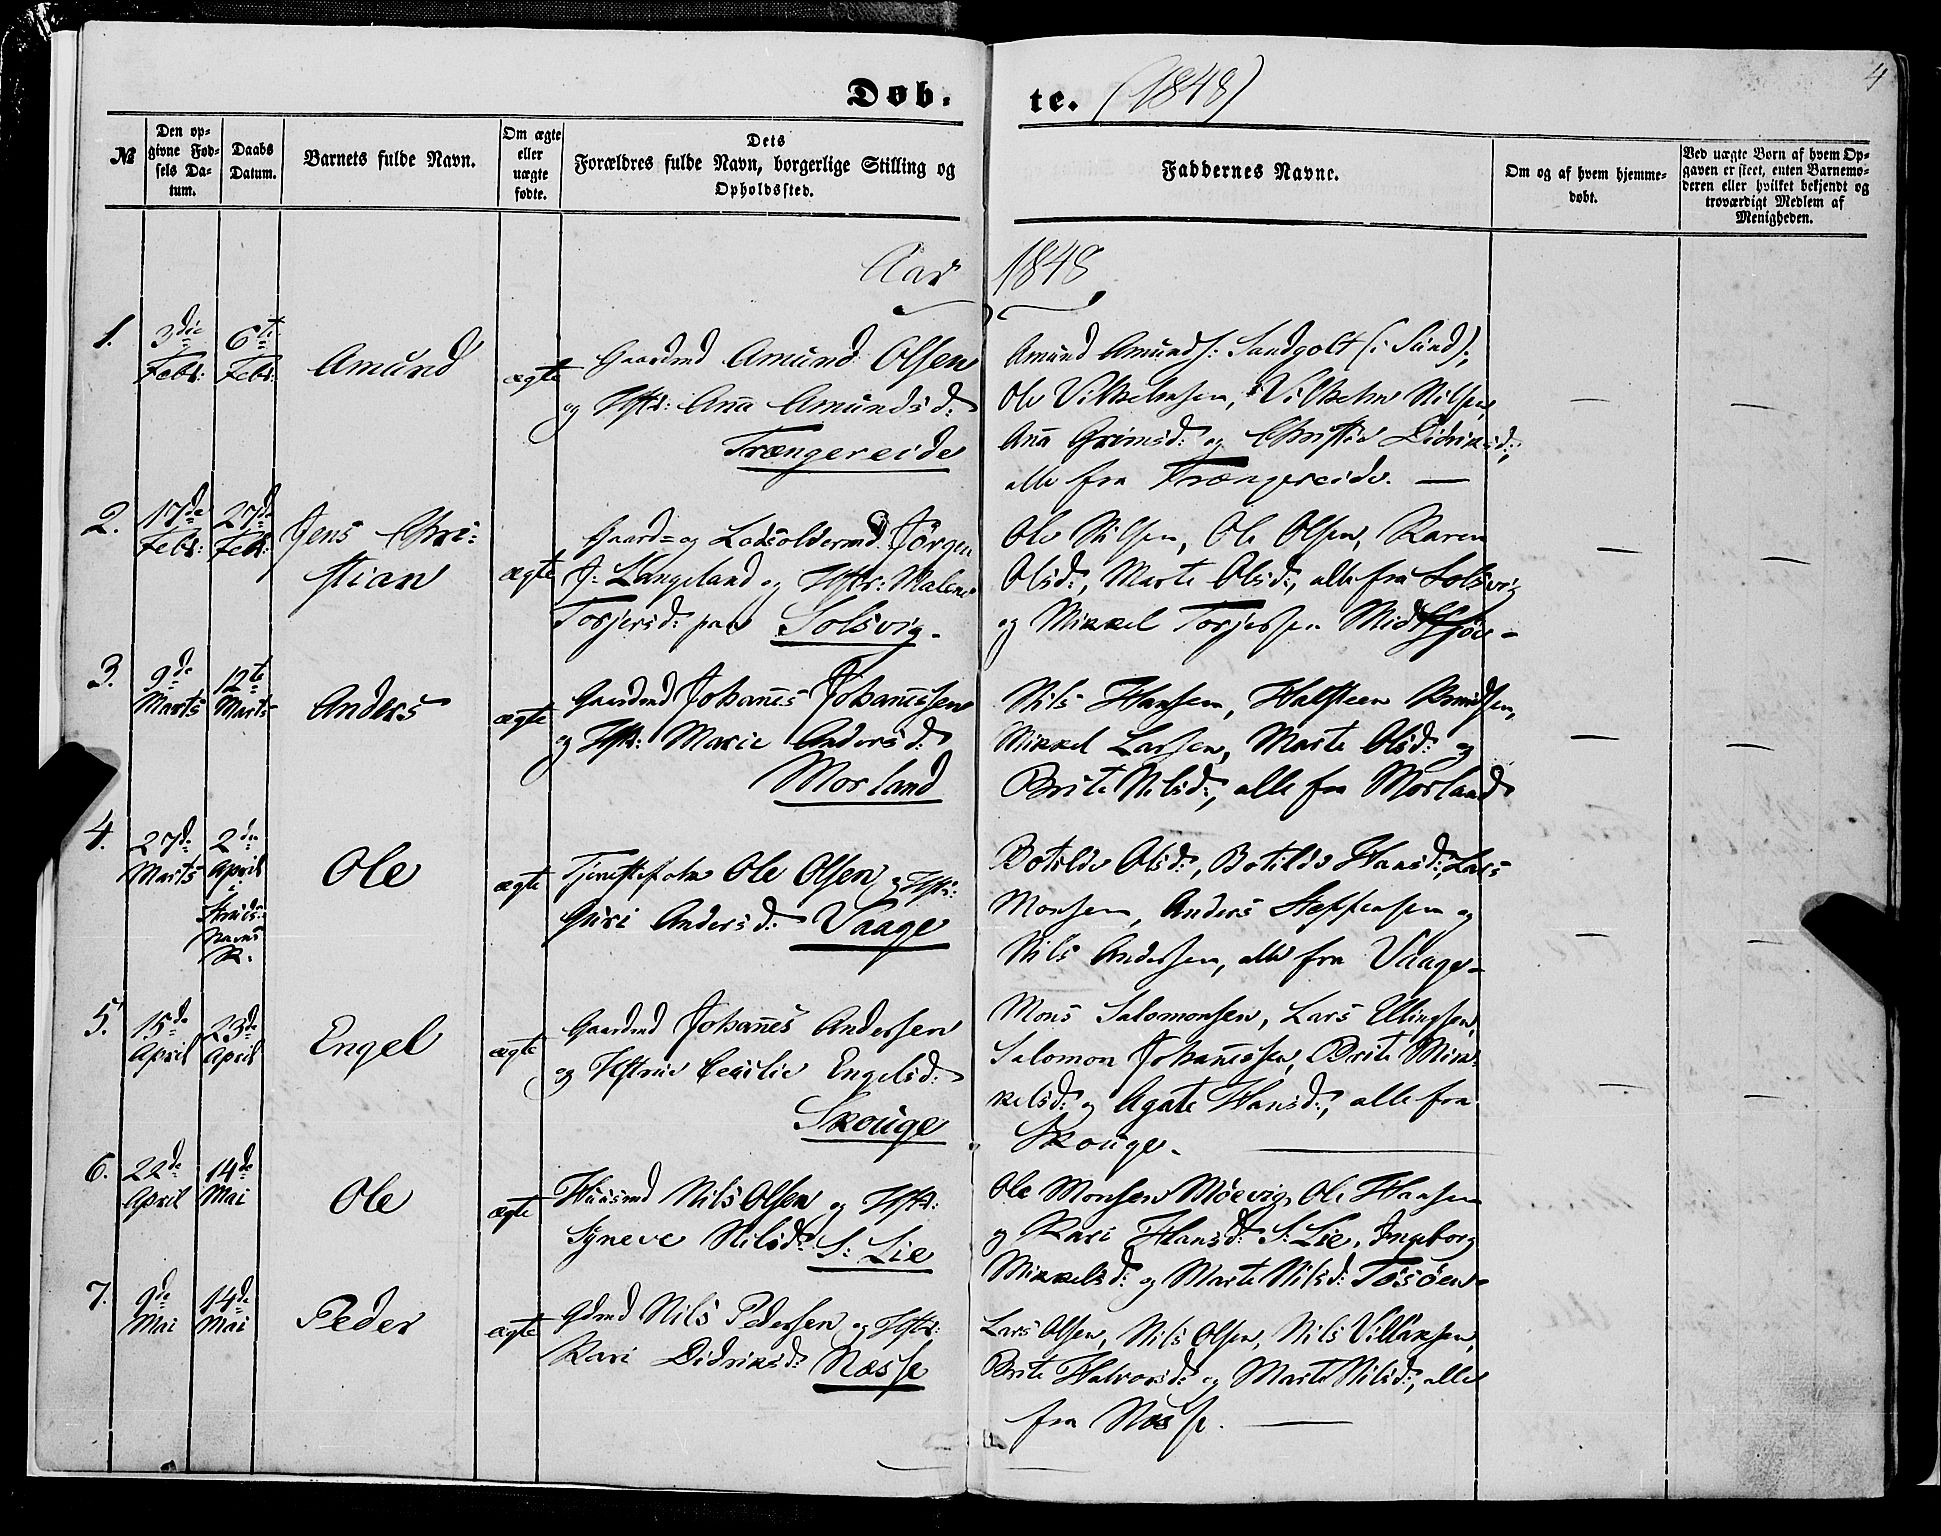 Døb. te. (1848)
4
№
Den op-
givne Fød-
sels Da-
tum.
Daabs
Datum.
Barnets fulde Navn.
Om ægte
eller
uægte
fødte.
Dets
Forældres fulde Navn, borgerlige Stilling og
Opholdssted.
Faddernes Navne.
Om og af hvem hjemme-
døbt.
Ved uægte Børn af hvem Op-
gaven er skeet, enten Barnemo-
deren eller hvilket bekjendt og
troværdigt Medlem af
Menigheden.
Aar 1848
1.
3die
Febr:
6te
Febr:
Amund
ægte
Gaardmd Amund Olsen
og Hstr: Anna Amundsd:
Trængereide
Amund Amunds: Sandgolt (i Sund);
Ole Vilhelmsen, Vilhelm Nilsen,
Anna Grimsd: og Christie Didriksd:,
alle fra Trængereide. —
—
—
2.
17de
Febr:
27de
Febr:
Jens Chri-
stian
ægte
Gaard- og Lodsoldermd Jørgen
J: Langeland og Hstr: Malene
Torjersd: paa Solsvig.
Ole Nilsen, Ole Olsen, Karen
Olsd:, Marte Olsd:, alle fra Solsvig
og Mikkel Torjersen
—
—
3.
9de
Marts
12te
Marts
Anders
ægte
Gaardmd Johannes Johannessen
og Hstr: Marie Andersd:
Morland
Nils Hansen, Halsteen
Mikkel Larsen, Marte Olsd: og
Brite Nilsd:, alle fra Morland
—
—
4.
27de
Marts
2den
April
i
Navns
K.
Ole
ægte
Ole Olsen og Hstr:
Guri Andersd: Vaage
Botilde Olsd:, Botilde Hansd:, Lars
Monsen, Anders Steffensen og
Nils Andersen, alle fra Vaage-
—
—
5.
15de
April
23de
April
Engel
ægte
Gaardmd Johannes Andersen
og Hstrue Cecilie Engelsd:
Skouge
Mons Salomonsen, Lars Ellingsen,
Salomon Johannessen, Brite Mik-
kelsd: og Agate Hansd:, alle fra
Skouge. —
—
—
6.
22de
April
14de
Mai
Ole
ægte
Huusmd Nils Olsen og Hstr:
Syneve Nilsd: S: Lie
Ole Monsen Møevig, Ole Hansen
og Kari Hansd: S: Lie, Ingeborg
Mikkelsd: og Marte Nilsd: Tøsøen-
7.
9de
Mai
14de
Mai
Peder
ægte
Gdmd Nils Pedersen og Hstr:
Kari Didriksd: Næsse
Lars Olsen, Nils Olsen, Nils Villaksen,
Brite Halvorsd: og Marte Nilsd:, alle
fra Næsse. —